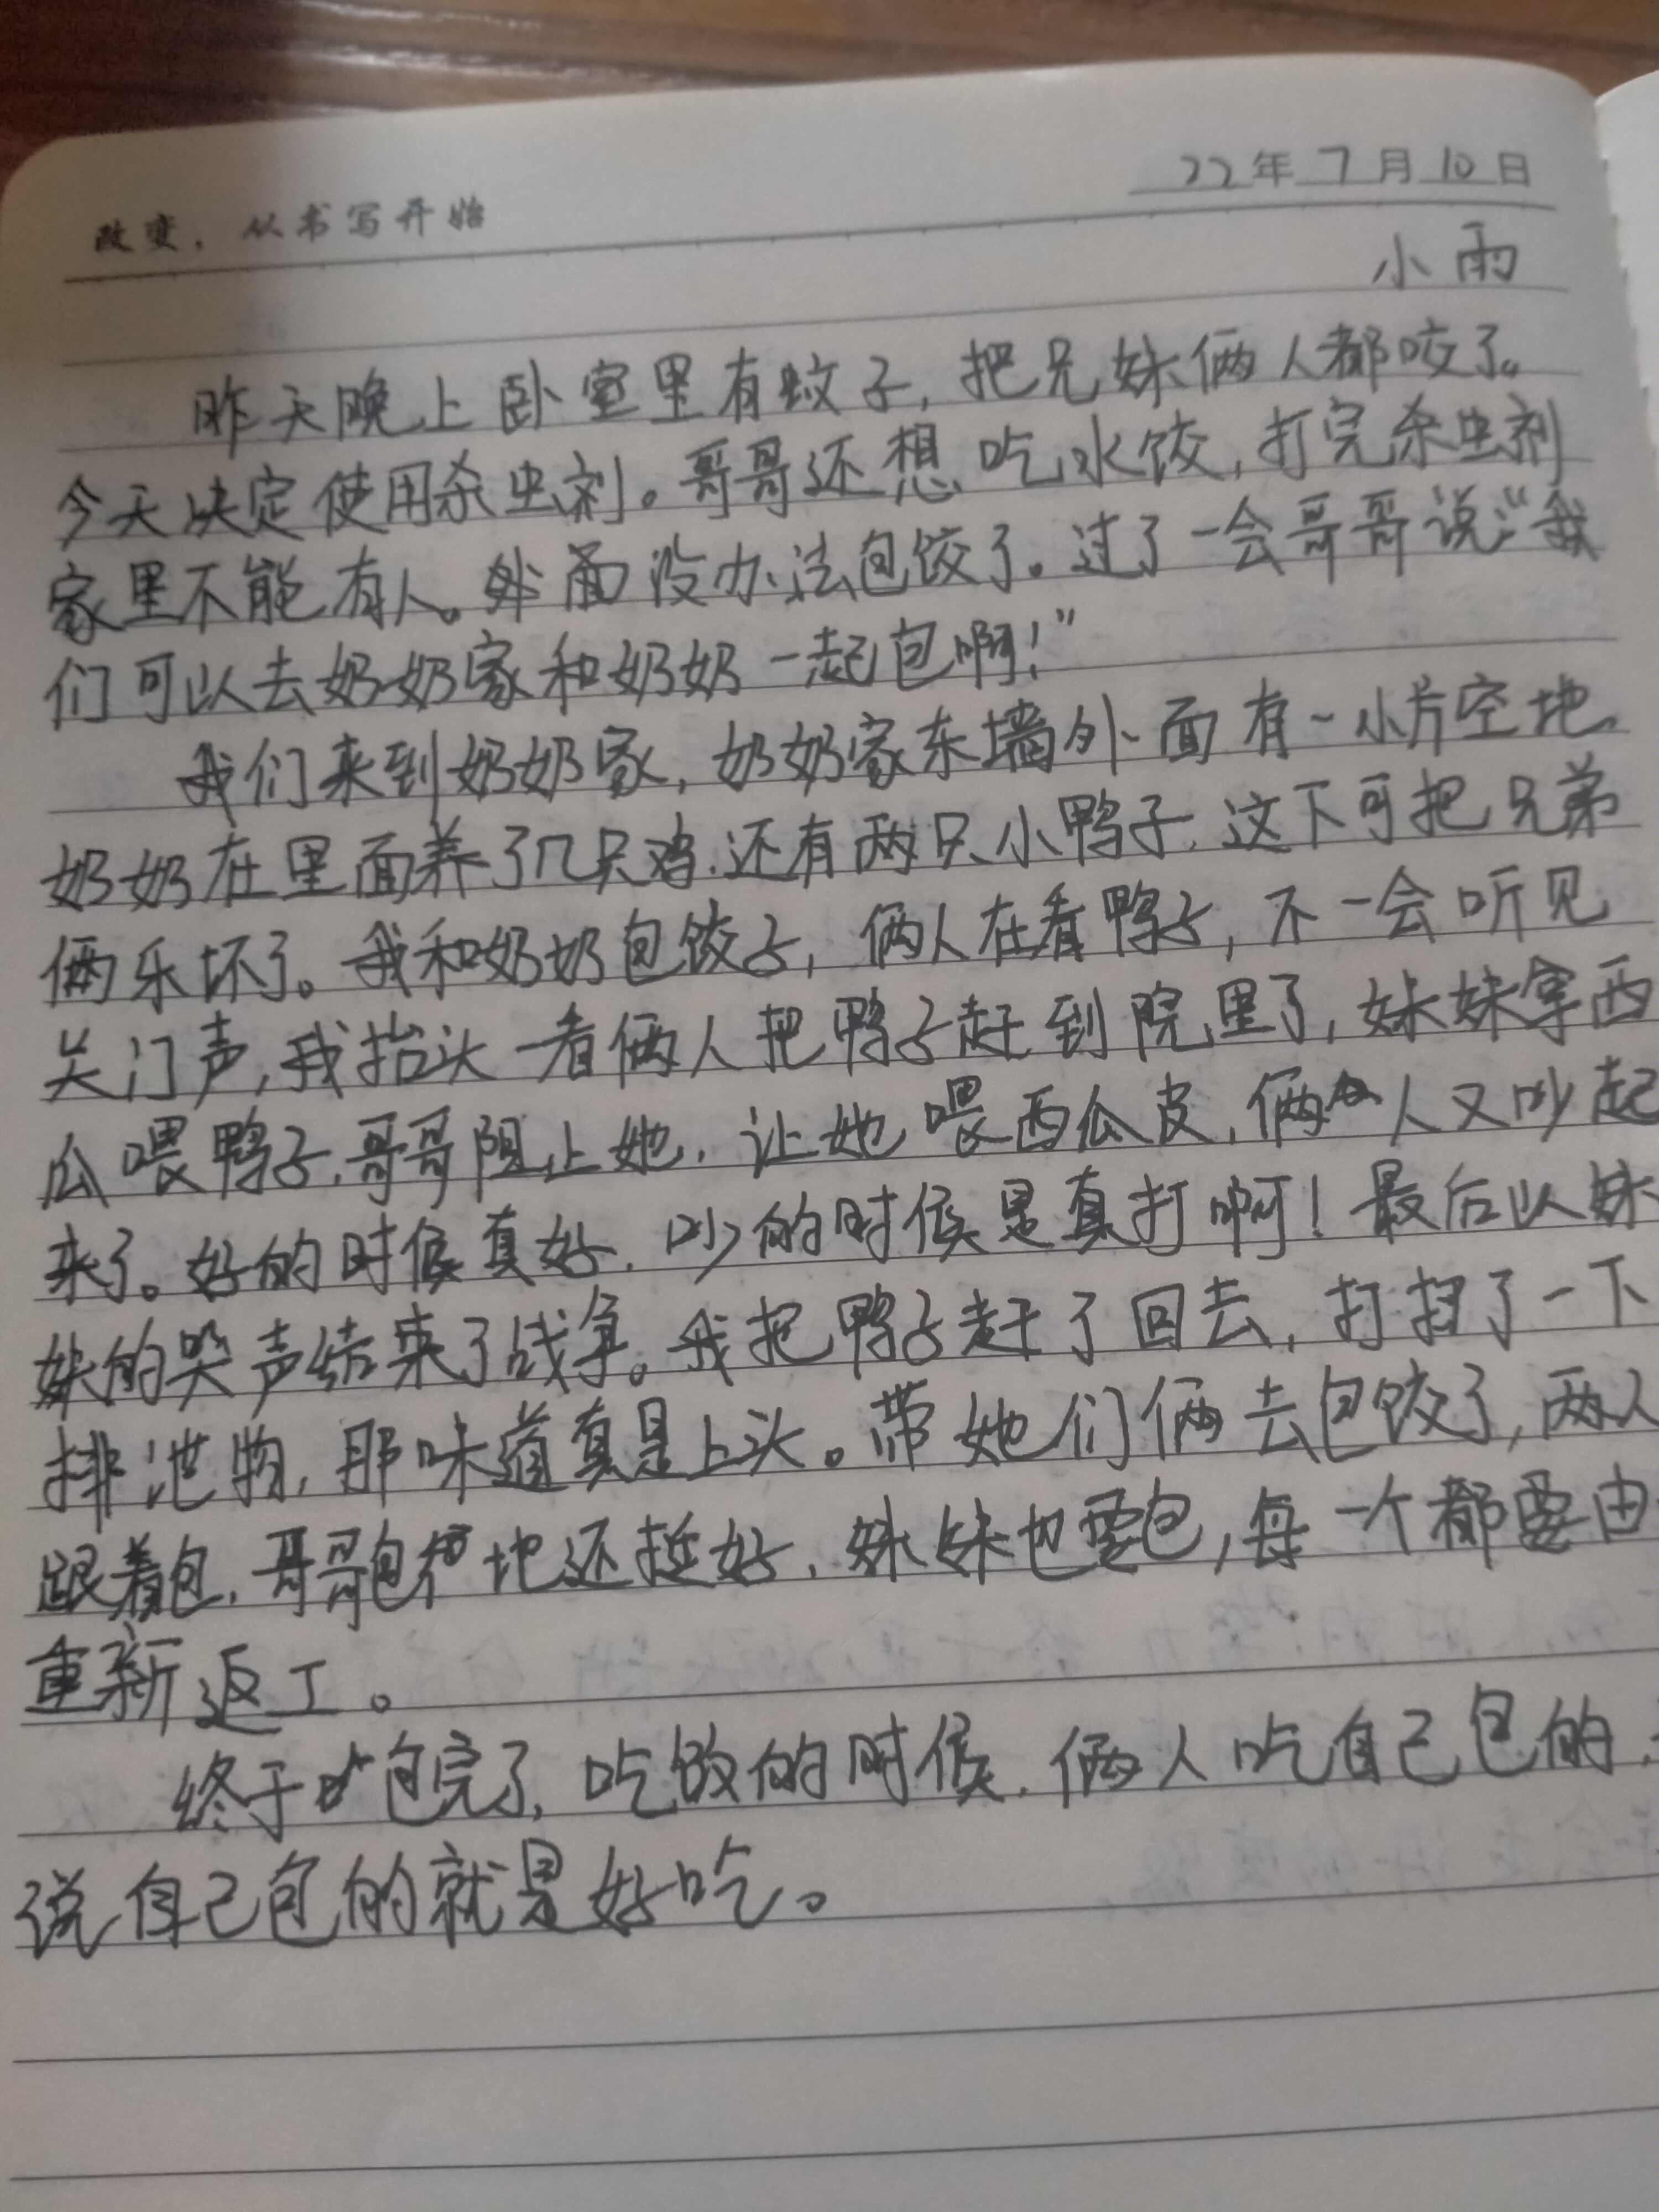 22年7月10日
改变，从书写开始
小雨
昨天晚上卧室里有蚊子，把兄妹俩人都咬了。
今天决定使用杀虫剂。哥哥还想吃水饺，打完杀虫剂
家里不能有人。外面没办法包饺了。过了一会哥哥说：“我
们可以去奶奶家和奶奶一起包啊！”
我们来到奶奶家，奶奶家东墙外面有一小片空地。
奶奶在里面养了几只鸡.还有两只小鸭子.这下可把兄弟
俩乐坏了。我和奶奶包饺子，俩人在看鸭子，不一会听见
关门声，我抬头一看俩人把鸭子赶到院里了，妹妹拿西
瓜喂鸭子.哥哥阻止她.让她喂西瓜皮，俩人又吵起
来了。好的时候真好.吵的时候是真打啊！最后以妹
妹的哭声结束了战争。我把鸭子赶了回去，打扫了一下
排泄物，那味道真是上头。带她们俩去包饺了，两人
跟着包.哥哥包地还挺好.妹妹也要包，每一个都要由
重新返工。
终于包完了，吃饭的时候.俩人吃自己包的.
说自己包的就是好吃。